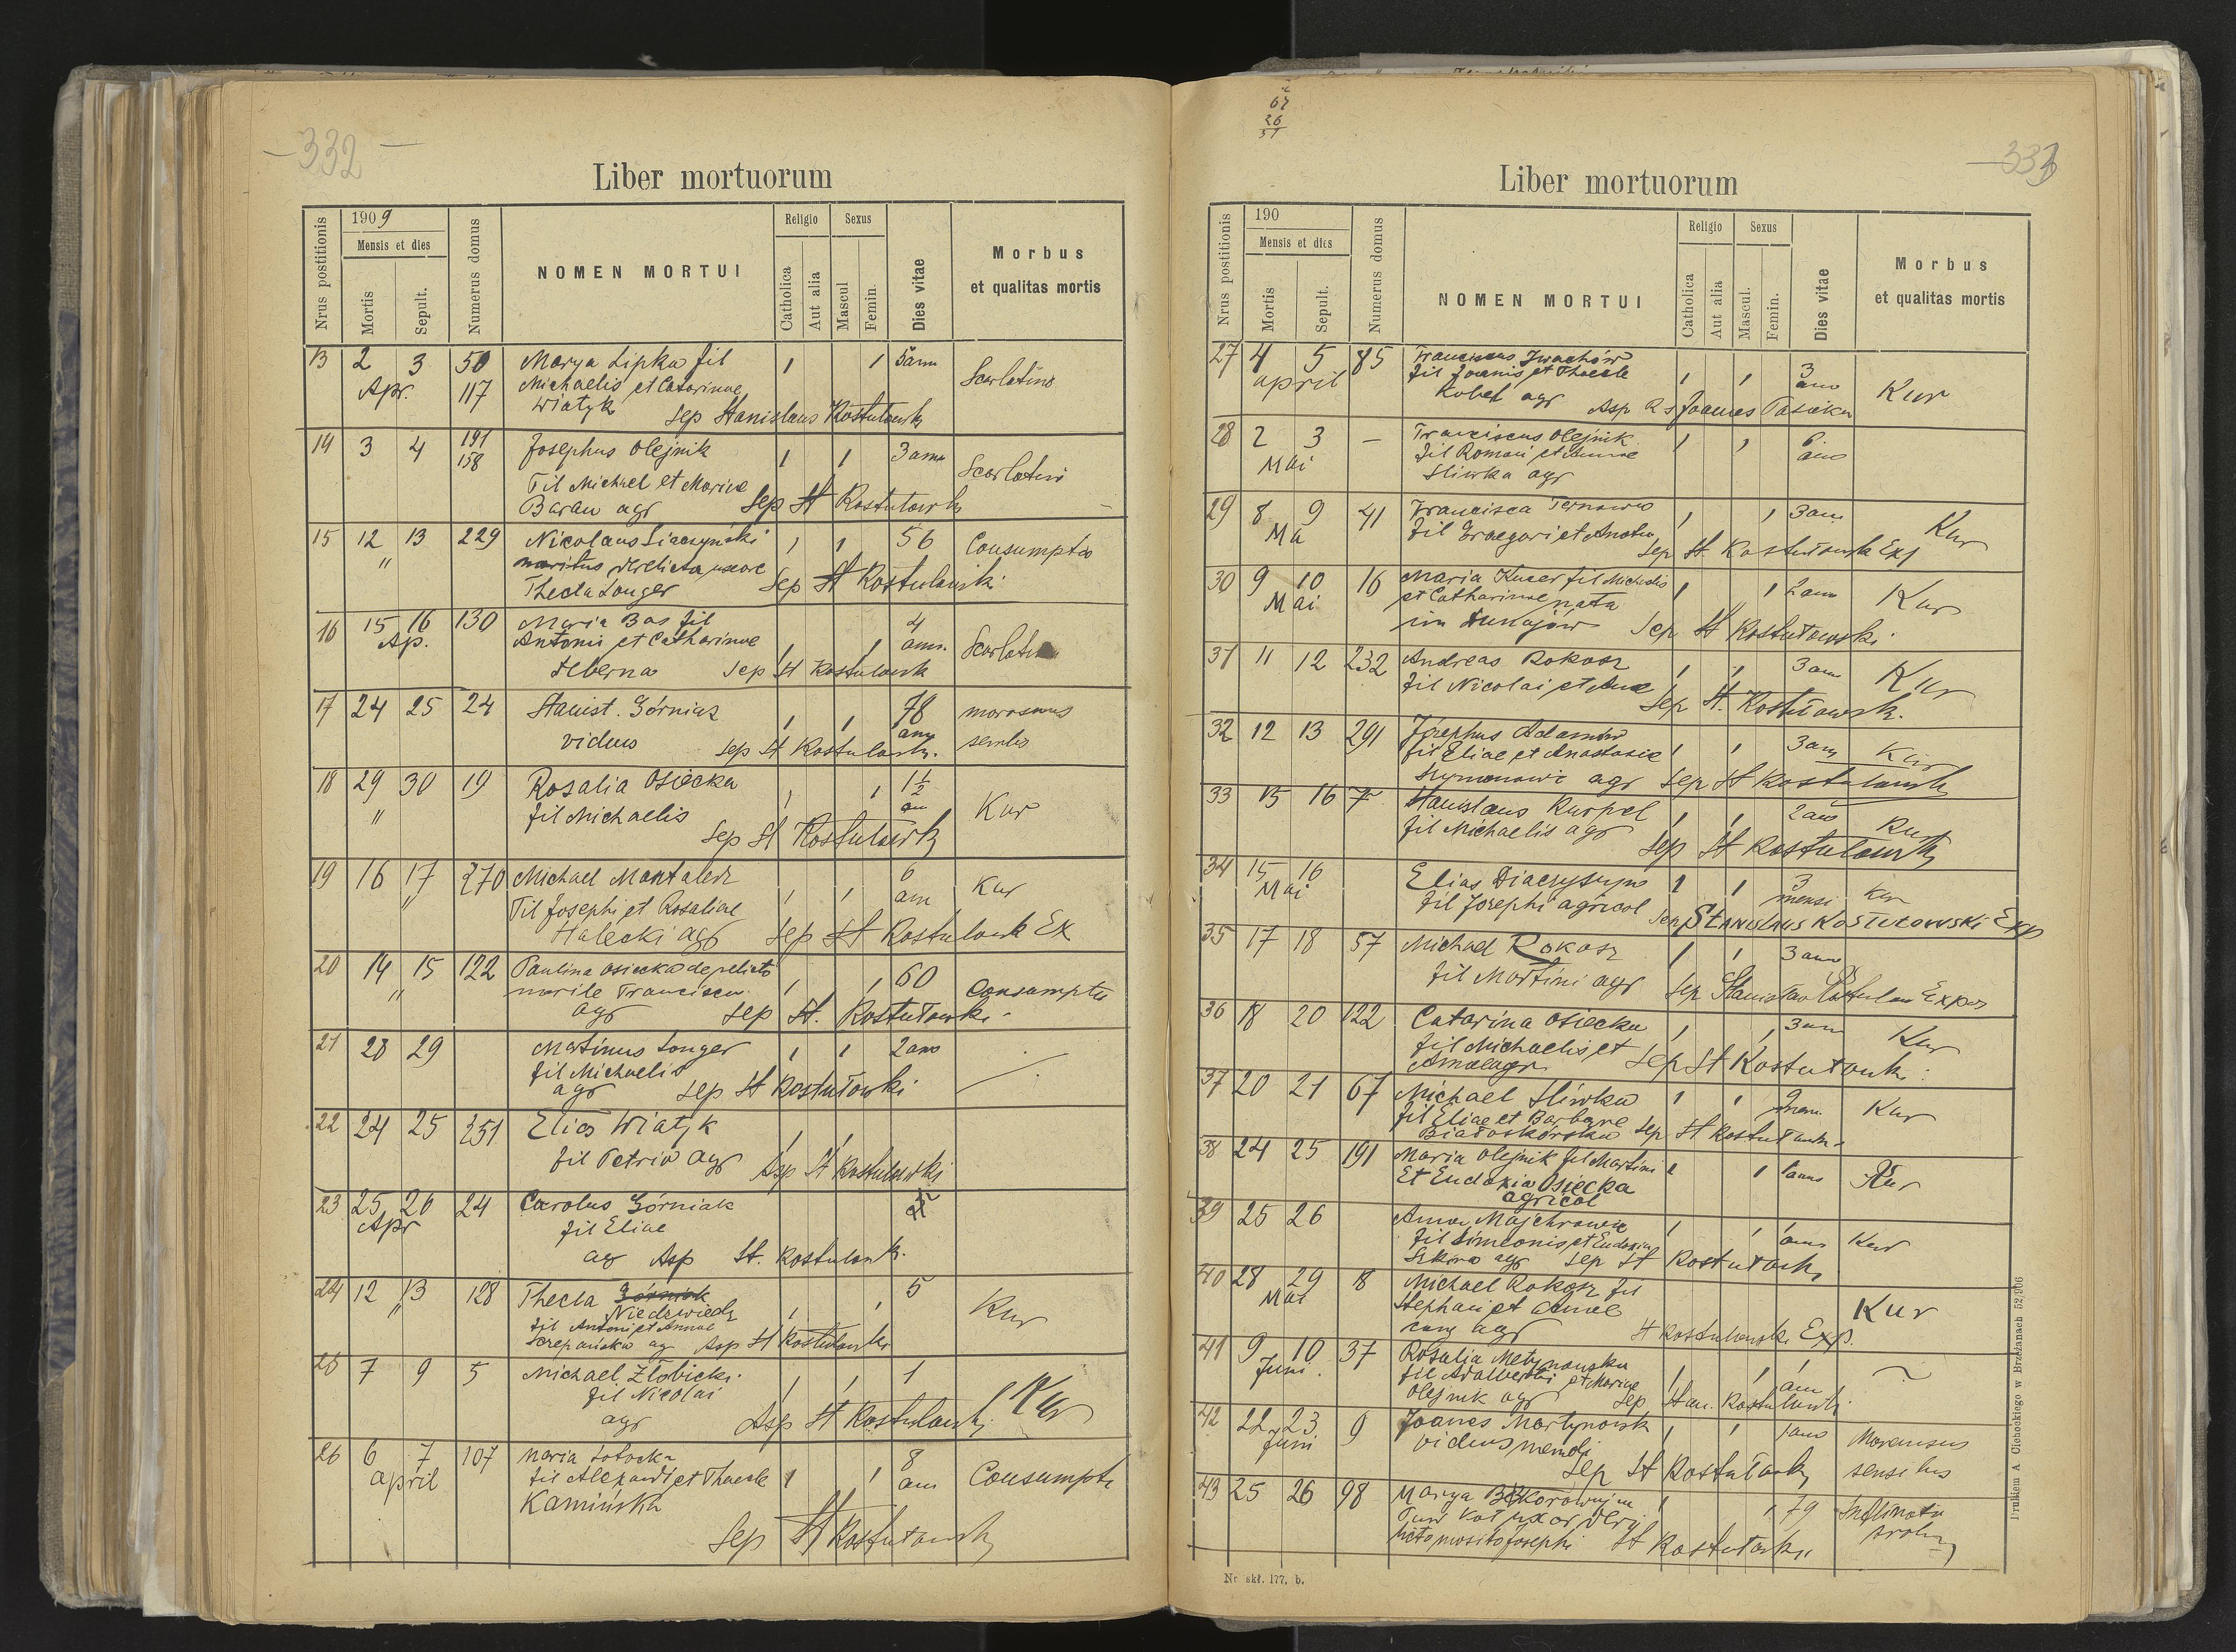 332
Liber mortuorum
Nrus postitionis
1909
Mensis et dies
Mortis
Sepult.
Numerus domus
NOMEN MORTUI
Religio
Catholica
Aut alia
Sexus
Mascul
Femin.
Dies vitae
Morbus
et qualitas mortis
13 2 3 50 Marya Lipka fil 1 1 5 ann
Apr. 117 Michaelis et Catarinae Scarlatina
Wiatyk Sep Stanislaus Kostutowsk
14 3 4 191 Josephus Olejnik 1 1 3 ann
158 Fil Michael et Mariae Scarlatin
Baran agr Sep St Kostutowsk
15 12 13 229 Nicolaus 1 1 56 Consumptio
" maritus derelicta uxore
Thecla Longer Sep St Kostutowski
16 15 16 130 Maria Bas fil 4
Ap. Antonii et Catharinae 1 1 ann. Scarlatina
Sep St Kostutowsk
17 24 25 24 Stanisl. Górniak 1 1 78 marasmus
viduus ann senilis
Sep St Kostutowsk.
18 29 30 19 Rosalia Osiecka 1 1 1½
" fil Michaelis an Kur
Sep St Kostutowsk
19 16 17 270 Michael Mantaler 6
" Fil Josephi et Rosaliae 1 1 ann Kur
Halecki agr Sep St Kostutowsk Ex
20 14 15 122 Paulina Osiecka derelicto 1 1 60
" marite Francisco Consumptio
agr Sep St. Kostutowski
21 28 29 Martinus Longer 1 1 2 ano
fil Michaelis
agr Sep St Kostutowski
22 24 25 251 Elias Wiatyk 1 1
fil Petrio agr Asp St Kostutowski
23 25 26 24 Carolus Górniak
Apr fil Eliae
ag Asp St. Kostutowsk.
24 12 13 128 Thecla Górniak 5
" Niedzwiedz 1 1 Kur
fil Antoni et Annae
Szczepańska ag Asp St Kostutowsk
25 7 9 5 Michael Złobicki 1
fil Nicolai 1 1 Kur
agr Asp St Kostutowsk
26 6 7 107 Maria 8
april fil Alexandri et Theclae 1 1 ann Consumpti
Kamińska
Sep St Kostutowsk
67
26
51
333
Liber mortuorum
Nrus postitionis
190
Mensis et dies
Mortis
Sepult.
Numerus domus
NOMEN MORTUI
Religio
Catholica
Aut alia
Sexus
Mascul.
Femin.
Dies vitae
Morbus
et qualitas mortis
27 4 5 85 Franciscus Iwachów 3
april fil Joanis et Theclae 1 1 ano Kur
agr Asp Rs Joannes Pasieka
28 2 3 — Franciscus Olejnik 1 1 6
Mai fil Romani et Annae ano
Sliwka agr
29 8 9 41 Francisca 1 1 3 ann Kur
Ma fil Graegori et
Sep St. Kostutowsk Exp
30 9 10 16 Maria Kucer fil Michaelis 1 1 2 ann Kur
Mai et Catharinae nata
in Dunajów Sep St Kostutowski
31 11 12 232 Andreas Rokosz 1 1 3 ann Kur
fil Nicolai et Anae
Sep St. Kostutowsk.
32 12 13 291 Josephus Adamów 1 1 3 ann Kur
fil Eliae et Anastasiae
agr Sep St Kostutowsk
33 15 16 7 Stanislaus Kurpel 1 1 2 ano Kur
fil Michaelis agr
Sep St Kostutowsk
34 15 16 Elias 1 1 3
Mai fil Josephi agricol mensi Kur
Sep Stanislaus Kostutowski Exp
35 17 18 57 Michael Rokosz 1 1 3 ann
fil Martini agr
Sep Stanislaw Kostutow Expos
36 18 20 122 Catarina Osiecka 1 1 3 ann Kur
fil Michaelis et
Annae agr Sep St Kostutowsk
37 20 21 67 Michael Sliwka 1 1 Kur
fil Eliae et Barbare
Białoskórska Sep St Kostutowsk
38 24 25 191 Maria Olejnik fil Martini 1 1 1 anno Kur
Et Eudokia Osiecka
agricol
39 25 26 Anna Majchrowic 1 1 1 ann Kur
fil Simeonis et Eudokia
agr Sep St Kostutowsk
40 28 29 8 Michael Rokosz fil Kur
Mai Stephani et Annae
agr St Kostutowsk Exp.
41 9 10 37 Rosalia 1 1 1
Juni fil Adalberti et Mariae ann
Olejnik agr Sep Stan. Kostutowski
42 22 23 9 Joanes Martynowsk 1 1 ano Marasmus
Juni viduus senilus
Sep St Kostutowsk
43 25 26 98 Marya 1 1 79
uxor
marito Josephi St Kostutowsk
Nr skł. 177. b.
Drukiem A Cichockiego w Brzeżanach 52,906